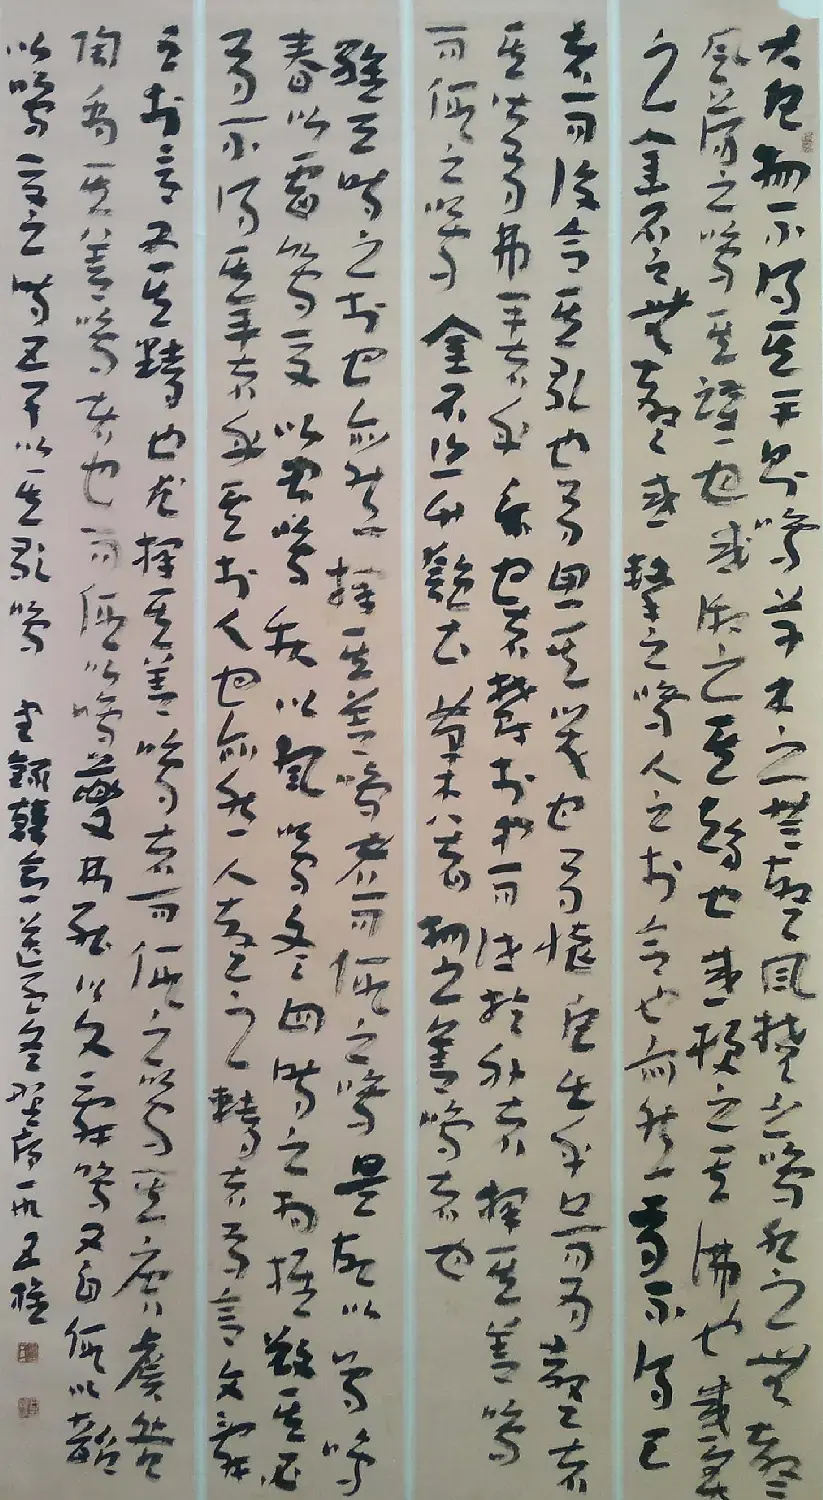 大凡物不得其平則鳴草木之無聲風撓之鳴水之無聲
風蕩之鳴其躍也或激之其趨也或梗之其沸也或炙
之金石之無聲或擊之鳴人之於言也亦然有不得已
者而後言其歌也有思其哭也有懷凡出乎口而為聲者
其皆有弗平者乎樂也者鬱於中而泄於外者擇其善鳴
而假之鳴金石絲竹匏土革木八者物之善鳴者也
維天時之於也亦然擇其善鳴者而假之鳴是故以鳥鳴
春以雷鳴夏以蟲鳴秋以風鳴冬四時之相推敚其必
有不得其平者乎其於人也亦然人聲之精者有言文辭
之於言又其精也尤擇其善鳴者而假之鳴其唐虞咎
陶禹其善鳴者也而假以鳴夔弗能以文辭鳴又自假以韶
以鳴夏之時五子以其歌鳴 錄韓愈送孟冬野序